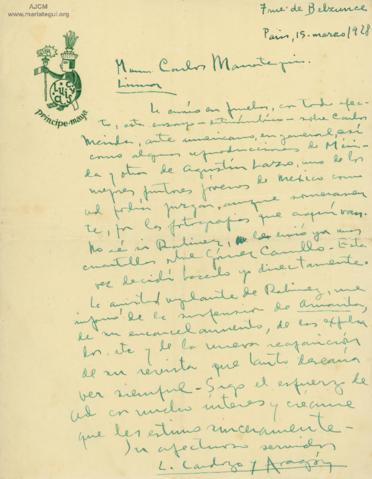 AJCM
www.mariategui.org
7 rue de Belzunce
Paris, 15-marzo/1928
príncipe-maya
Carlos
Lima
Le envío en pueblos, con todo afec-
to, este ensayo sobre Carlos
Mérida, arte americano, en general, así
como algunas reproducciones de Méri-
da y otras de Agustín Lazo, uno de los
mejores pintores jóvenes de México como
ud podrá juzgar, aunque someramen-
te, por las fotografías que aquí van.
No sé si le envió ya unas
cuartillas sobre Gómez Carrillo. Esta
vez decidí hacerlo yo directamente.
La amistad vigilante de me
informó de la suspensión de Amauta,
de su encarcelamiento, de
etc y de la nueva reaparición
de su revista que tanto deseara
ver siempre. Sigo el esfuerzo de
ud con mucho interés y créame
que les estimo sinceramente.
Su afectuoso servidor
L. Cardoza y Aragón